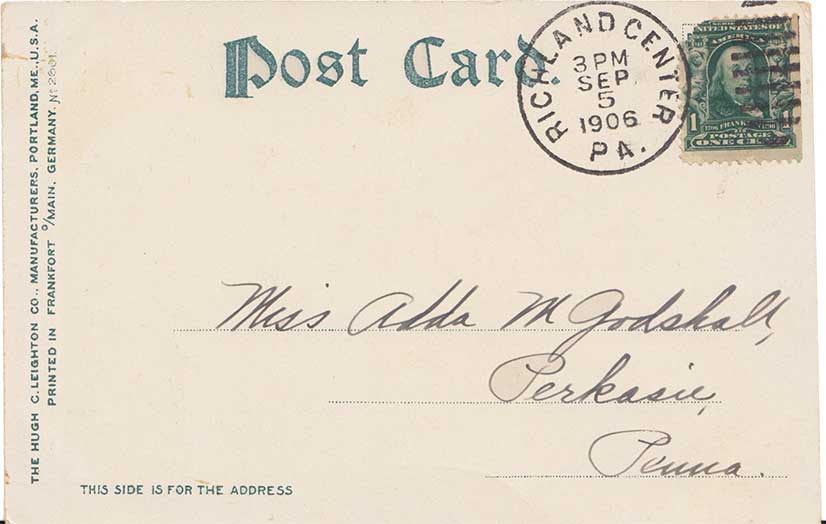 Post Card.
RICHLAND CENTER
3 PM
SEP
5
1906
PA.
UNITED STATES OF
AMERICA
1
1706 FRANKLIN 1790
POSTAGE
ONE CENT
THE HUGH C. LEIGHTON CO., MANUFACTURERS, PORTLAND, ME., U.S.A.
PRINTED IN FRANKFORT o/MAIN, GERMANY. No 2601
Miss Adda M Godshall,
Perkasie,
Penna.
THIS SIDE IS FOR THE ADDRESS